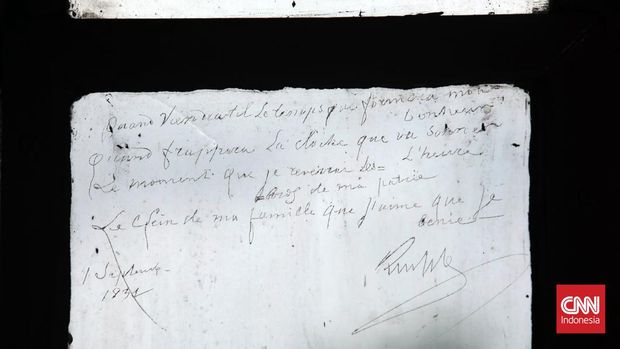 Quand Viendra til le temps que formera mon
bonheur
Quand frappera la cloche que va sonner
L'heure
Le moment que je reverrai les
bords de ma patrie
Le Sein de ma famille que j'aime que je
benie
1 Septembre
1831
CNN
Indonesia